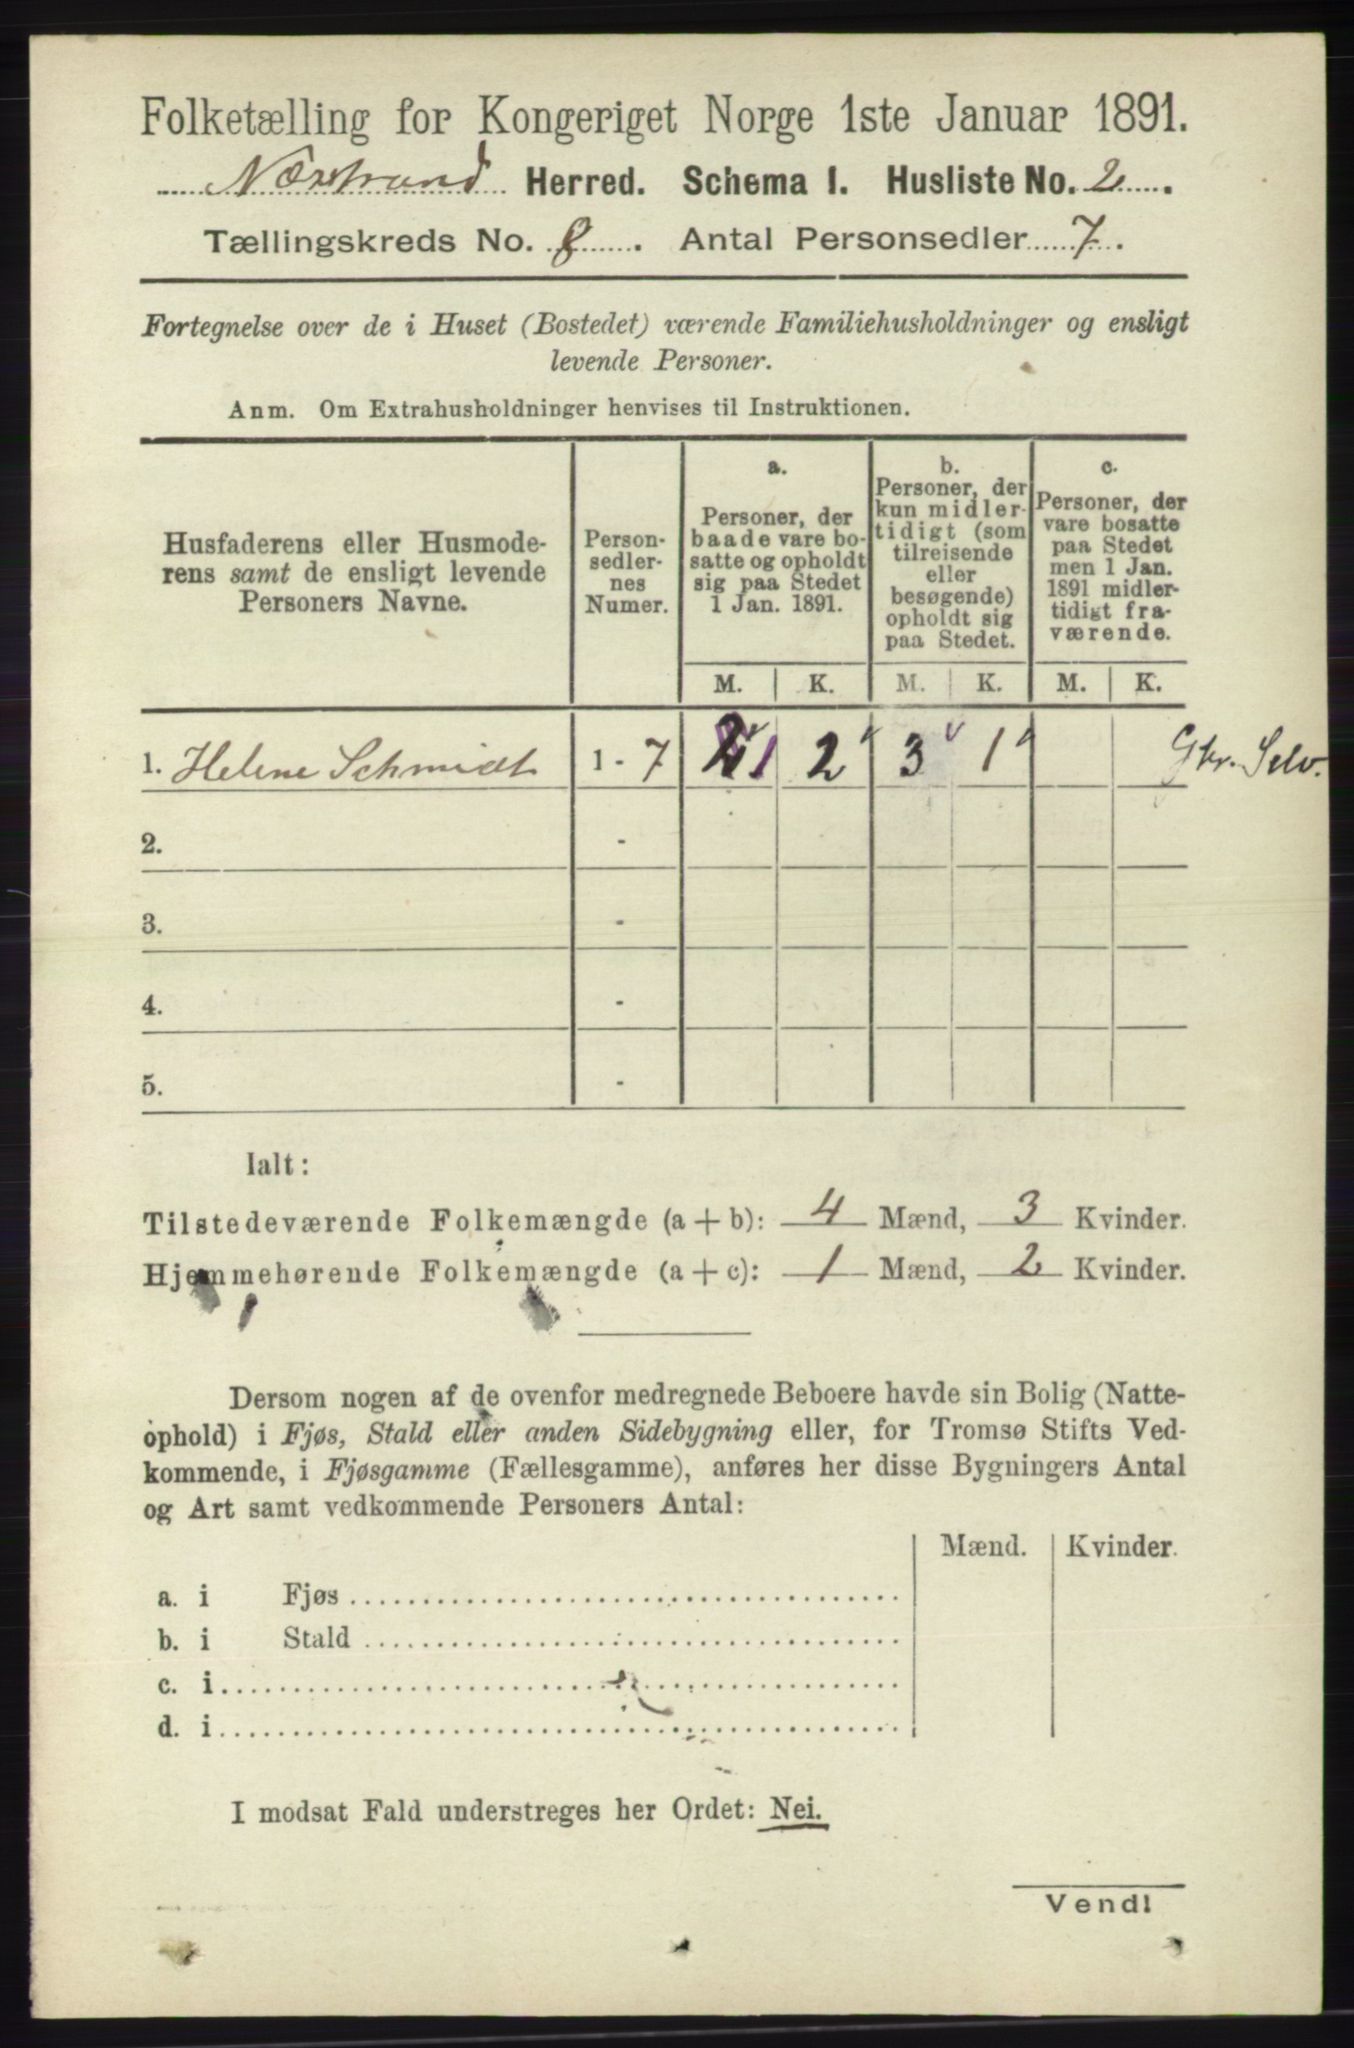 Folketælling for Kongeriget Norge 1ste Januar 1891.
Nærstrand Herred. Schema I. Husliste No. 2.
Tællingskreds No. 8. Antal Personsedler 7.
Fortegnelse over de i Huset (Bostedet) værende Familiehusholdninger og ensligt
levende Personer.
Anm. Om Extrahusholdninger henvises til Instruktionen.
Husfaderens eller Husmode-
rens samt de ensligt levende
Personers Navne.
Person-
sedler-
nes
Numer.
a.
Personer, der
baade vare bo-
satte og opholdt
sig paa Stedet
1 Jan. 1891.
b.
Personer, der
kun midler-
tidigt (som
tilreisende
eller
besøgende)
opholdt sig
paa Stedet.
c.
Personer, der
vare bosatte
paa Stedet
men 1 Jan.
1891 midler-
tidigt fra-
værende.
M. K. M. K. M. K.
1. Helene Schmidt 1 - 7 1 2 3 1 Gbr. Selv.
2. -
3. -
4. -
5. -
Ialt:
Tilstedeværende Folkemængde (a + b): 4 Mænd, 3 Kvinder.
Hjemmehørende Folkemængde (a + c): 1 Mænd, 2 Kvinder.
Dersom nogen af de ovenfor medregnede Beboere havde sin Bolig (Natte-
ophold) i Fjøs, Stald eller anden Sidebygning eller, for Tromsø Stifts Ved-
kommende, i Fjøsgamme (Fællesgamme), anføres her disse Bygningers Antal
og Art samt vedkommende Personers Antal:
Mænd. Kvinder.
a. i Fjøs
b. i Stald
c. i
d. i
I modsat Fald understreges her Ordet: Nei.
Vend!